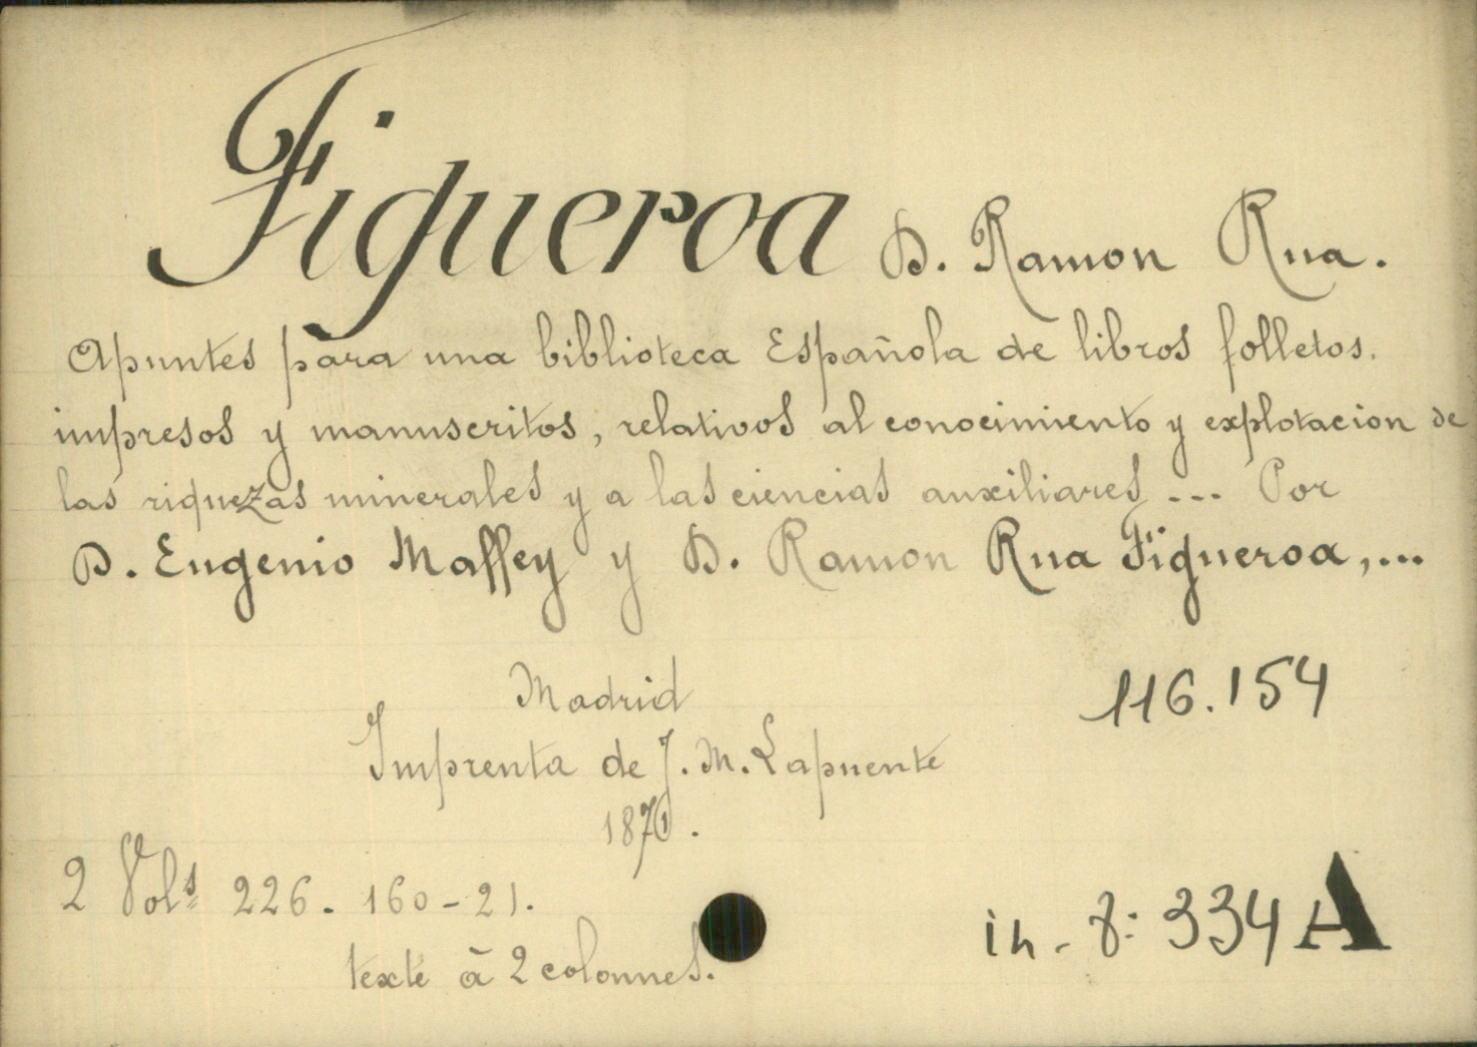 Figueroa D. Ramon Rua.
Apuntes para una biblioteca Española de libros folletos.
impresos y manuscritos, relativos al conocimiento y explotacion de
las riquezas minerales y a las ciencias auxiliares ... Por
D. Eugenio Maffey y D. Ramon Rua Figueroa,...
Madrid
116.154
Imprenta de J. M. Lapuente
2 Vols 226. 160-21.
in-8: 334 A
texte à 2 colonnes.